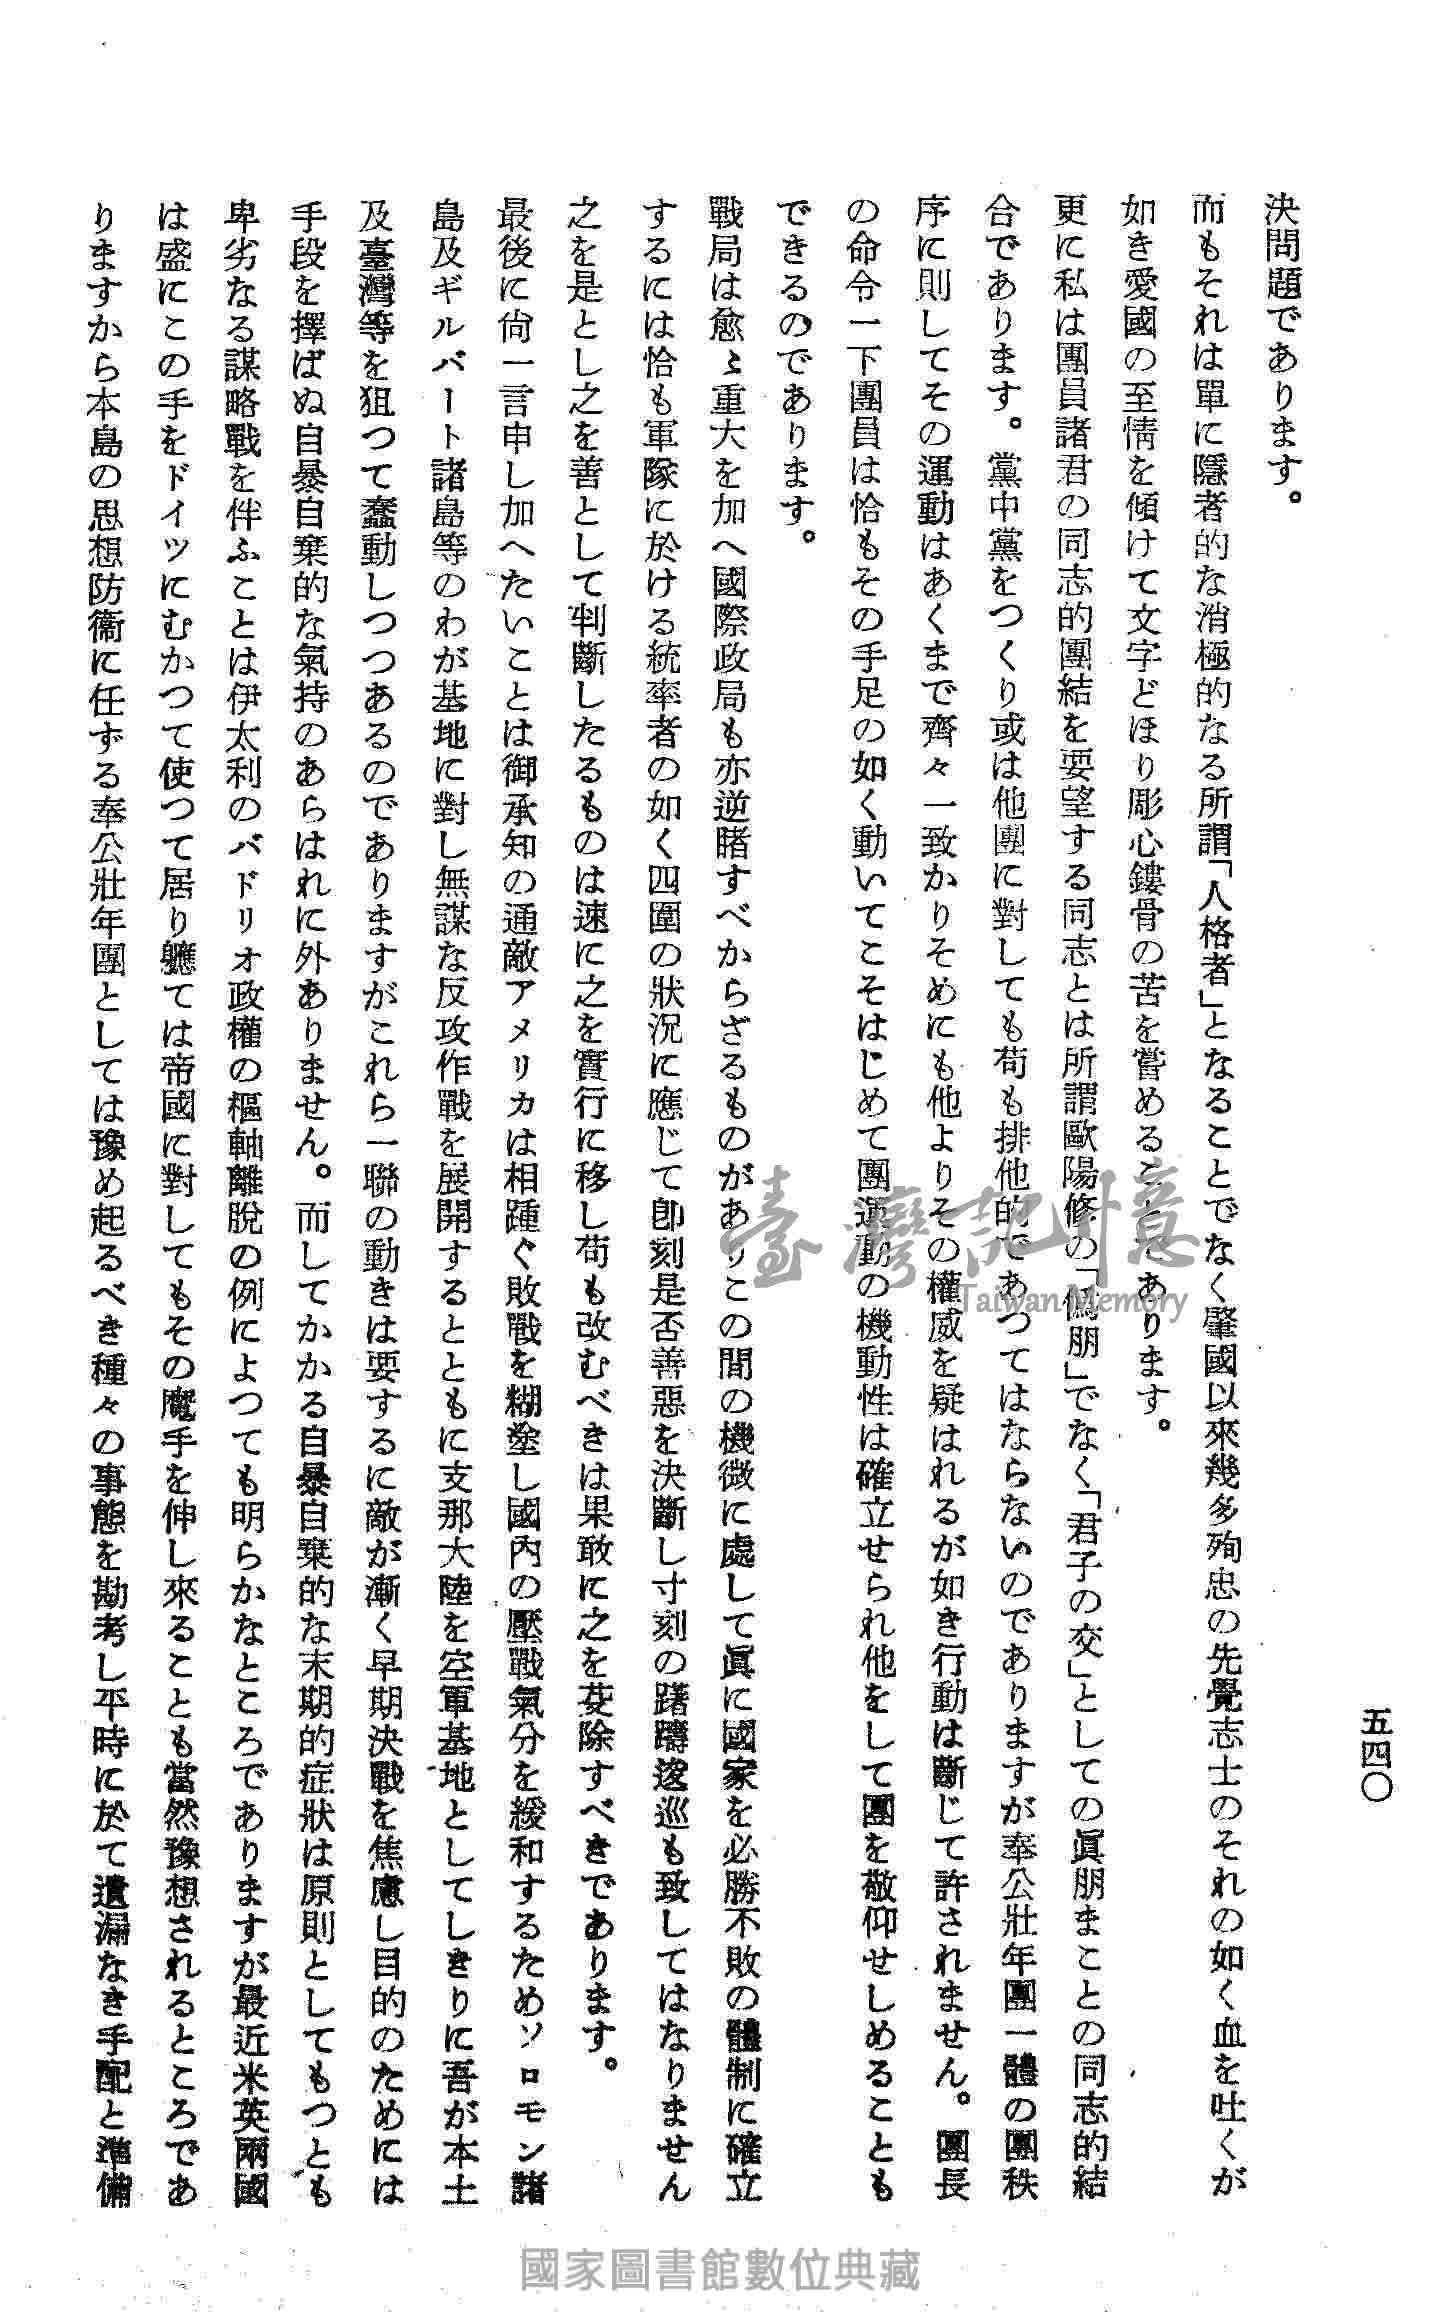 五四〇
決問題であります。
而もそれは單に隱者的な消極的なる所謂「人格者」となることでなく肇國以來幾多殉忠の先覺志士のそれの如く血を吐くが
如き愛國の至情を傾けて文字どほり彫心鏤骨の苦を嘗めることであります。
更に私は團員諸君の同志的團結を要望する同志とは所謂歐陽修の「僞朋」でなく「君子の交」としての眞朋まことの同志的結
合であります。黨中黨をつくり或は他團に對しても苟も排他的であつてはならないのでありますが奉公壯年團一體の團秩
序に則してその運動はあくまで齊々一致かりそめにも他よりその權威を疑はれるが如き行動は斷じて許されません。團長
の命令一下團員は恰もその手足の如く動いてこそはじめて團運動の機動性は確立せられ他をして團を敬仰せしめることも
できるのであります。
戰局は愈〻重大を加へ國際政局も亦逆睹すべからざるものがありこの間の機微に處して眞に國家を必勝不敗の體制に確立
するには恰も軍隊に於ける統率者の如く四圍の狀況に應じて卽刻是否善惡を決斷し寸刻の躊躇逡巡も致してはなりません
之を是とし之を善として判斷したるものは速に之を實行に移し苟も改むべきは果敢に之を芟除すべきであります。
最後に尙一言申し加へたいことは御承知の通敵アメリカは相踵ぐ敗戰を糊塗し國內の壓戰氣分を緩和するためソロモン諸
島及ギルバート諸島等のわが基地に對し無謀な反攻作戰を展開するとともに支那大陸を空軍基地としてしきりに吾が本土
及臺灣等を狙つて蠢動しつつあるのでありますがこれら一聯の動きは要するに敵が漸く早期決戰を焦慮し目的のためには
手段を擇ばぬ自暴自棄的な氣持のあらはれに外ありません。而してかかる自暴自棄的な末期的症狀は原則としてもつとも
卑劣なる謀略戰を伴ふことは伊太利のバドリオ政權の樞軸離脫の例によつても明らかなところでありますが最近米英兩國
は盛にこの手をドイツにむかつて使つて居り軈ては帝國に對してもその魔手を伸し來ることも當然豫想されるところであ
りますから本島の思想防衞に任ずる奉公壯年團としては豫め起るべき種々の事態を勘考し平時に於て遺漏なき手配と準備
臺灣記憶
Taiwan Memory
國家圖書館數位典藏